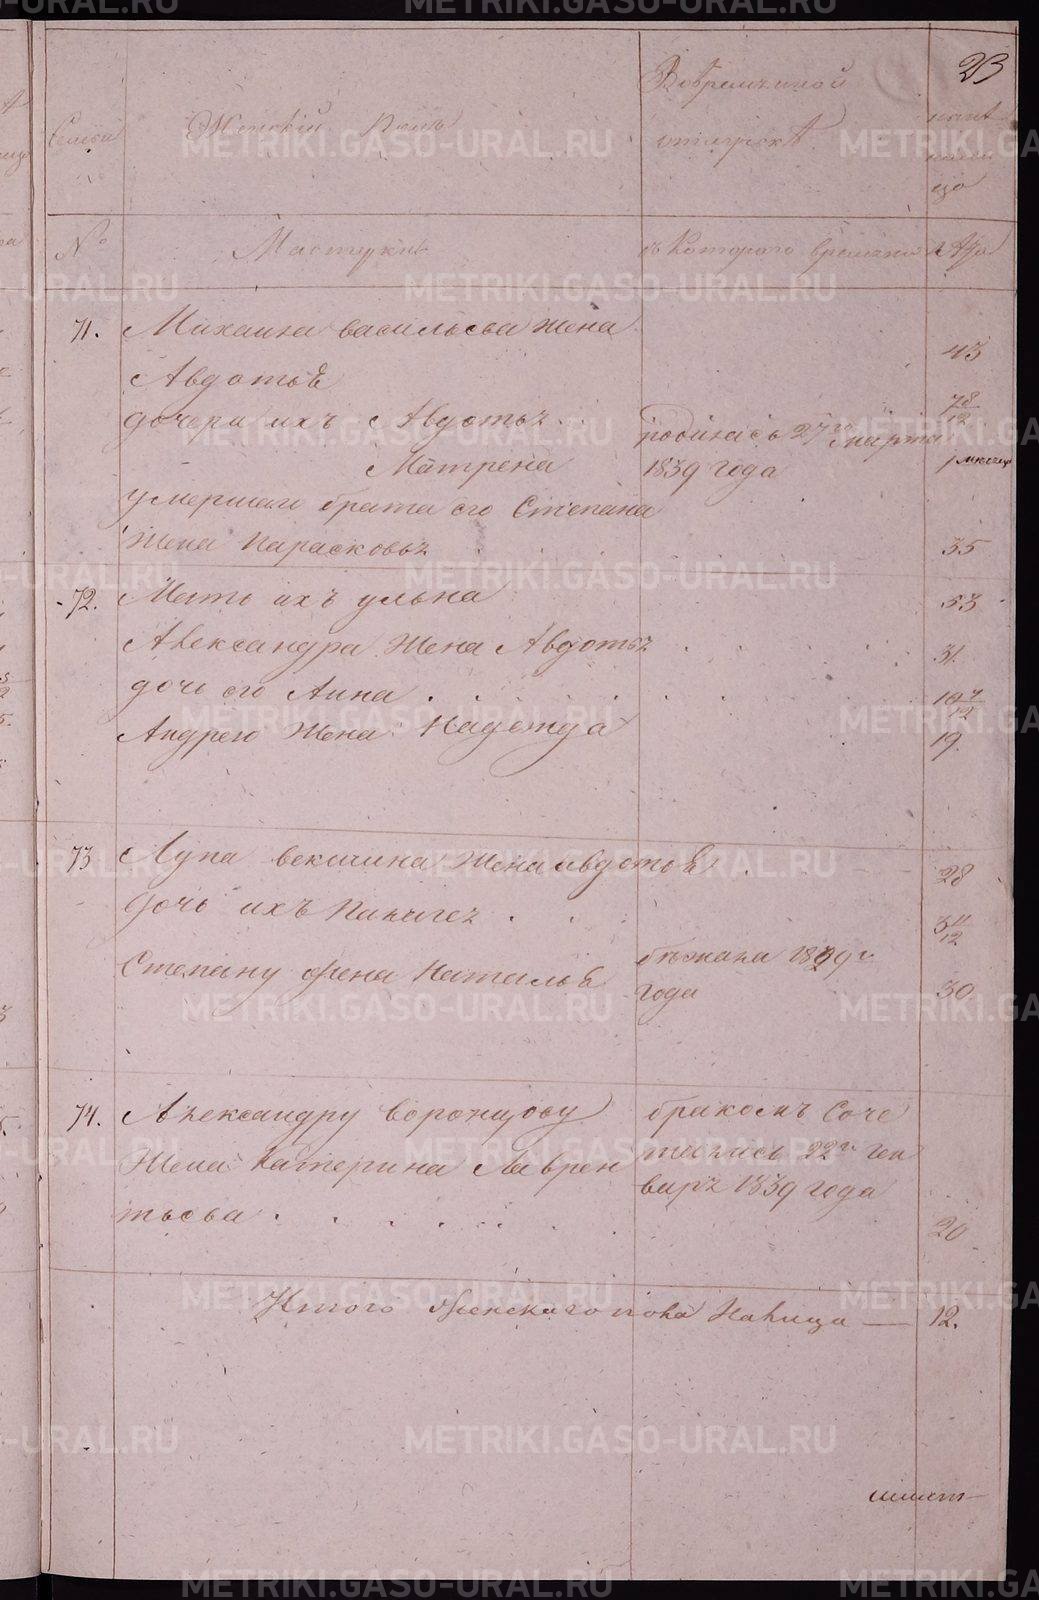 23
Семьи
Женский полъ
Вовременной
отлучкѣ
ныне
лицо
№
Мастерки
съ Которого времени
лѣта
71. Михаила васильева жена
43
Авдотья
дочери ихъ Авдотья
7 8/12
Матрена
родилась 27го марта
1839 года
1 месяцъ
умершаго брата его Степана
Жена Парасковья
35
72. Мать ихъ ульяна
53
Александра Жена Авдотья
31
дочь его Анна
10 7/12
Андрею Жена Надежда
19.
73 Лупа векшина Жена авдотья
28
дочь ихъ Палагея
3 11/12
Степану жена Наталья
бѣжала 1839го
года
30
74. Александру воронцову
бракомъ Соче
Жена Катерина Лаврен
талась 22го Ген
тьева
варя 1839 года
20
Итого женскаго пола Налицо — 12.
METRIKI.GASO-URAL.RU